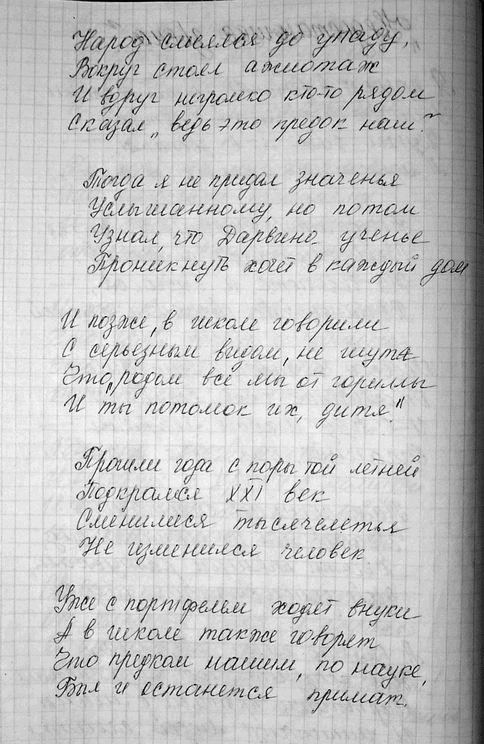 Народ смеялся до упаду,
Вокруг стоял ажиотаж
И вдруг негромко кто-то рядом
Сказал „ведь это предок наш"
Тогда я не придал значенья
Услышанному, но потом
Узнал, что Дарвина ученье
Проникнуть хочет в каждый дом
И позже, в школе говорили
С серьезным видом, не шутя
Что „родом все мы от гориллы
И ты потомок их, дитя."
Прошли года с поры той летней
Подкрался XXI век
Сменилися тысячелетья
Не изменился человек
Уже с портфелем ходят внуки
А в школе также говорят
Что предком нашим, по науке,
Был и останется примат.